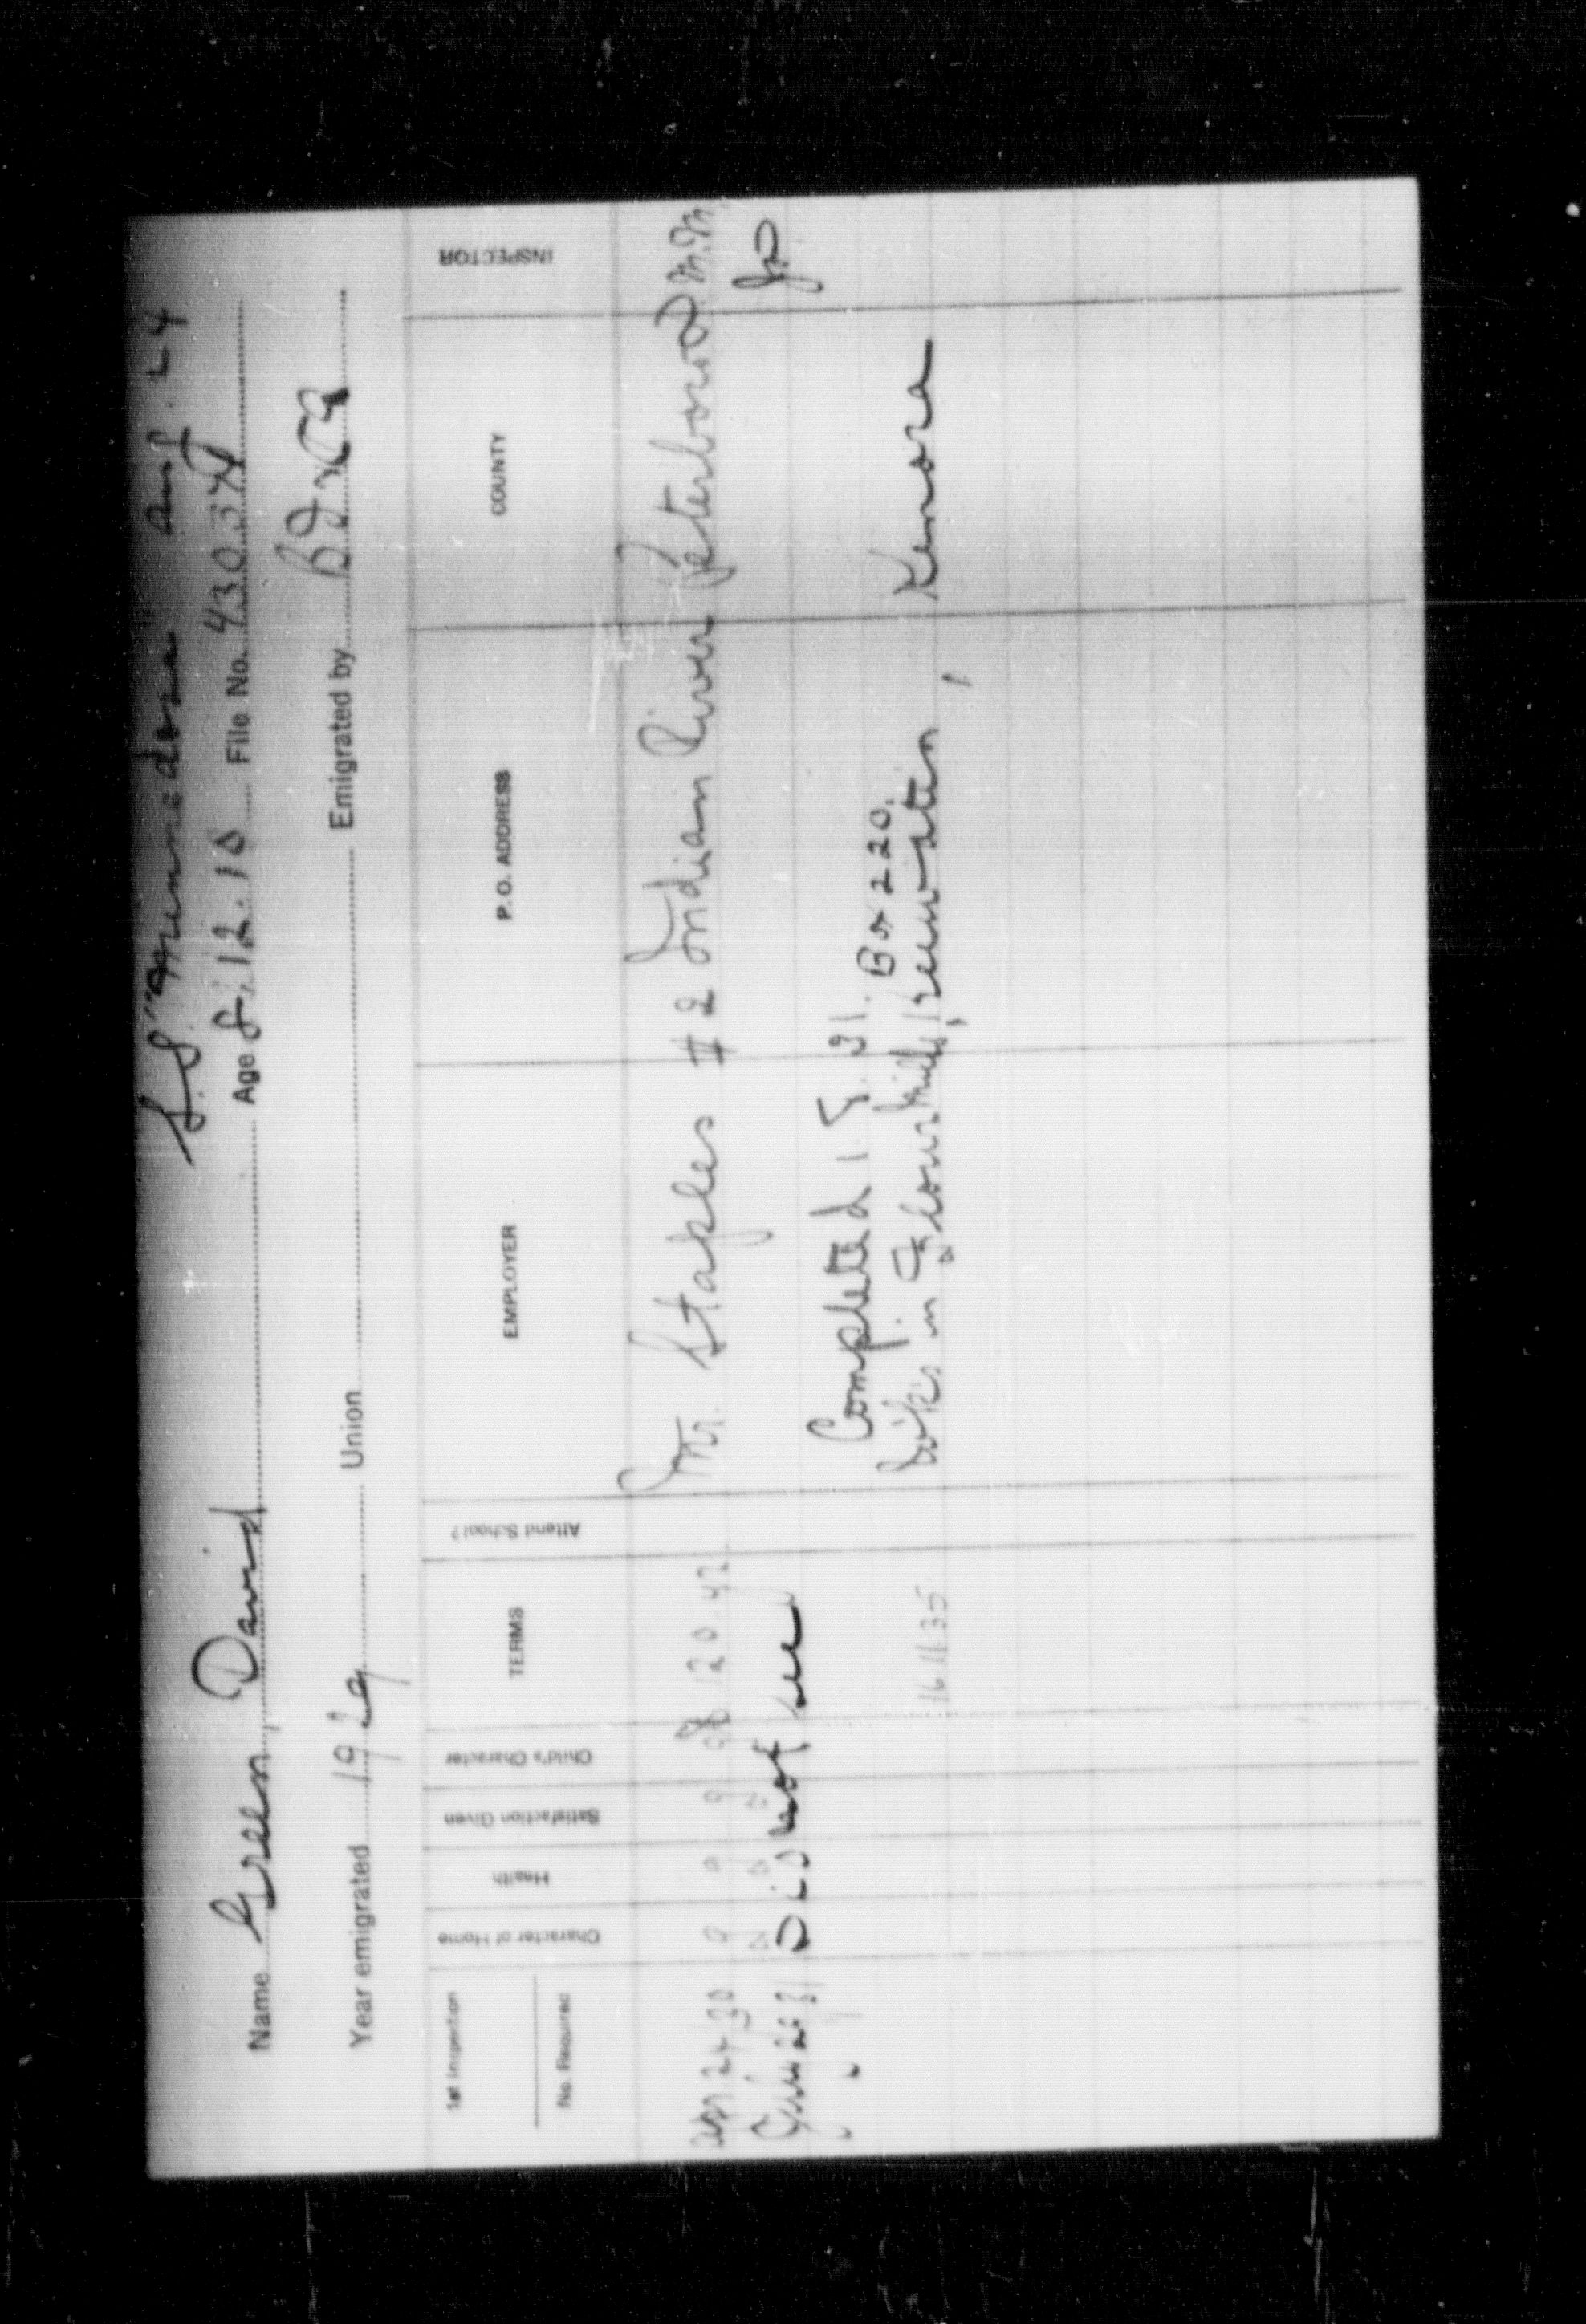 S.S. "Minnedosa Aug. 24
Name Green, David Age 8.12.10 File No. 43034
Year emigrated 1929 Union Emigrated by
1st Inspection
No. Required
Character of Home
Health
Satisfaction Given
Child's Character
TERMS
Attend School?
EMPLOYER
P. O. ADDRESS
COUNTY
INSPECTOR
Apr 24 30 g g g 120 Mr. Staples # 2 Indian River Peterboro M.M.
July 28 31 Did not see
Completed 15 31. Box 220,
16 11 35 Works in Flour Mills, Keewatin, Kenora